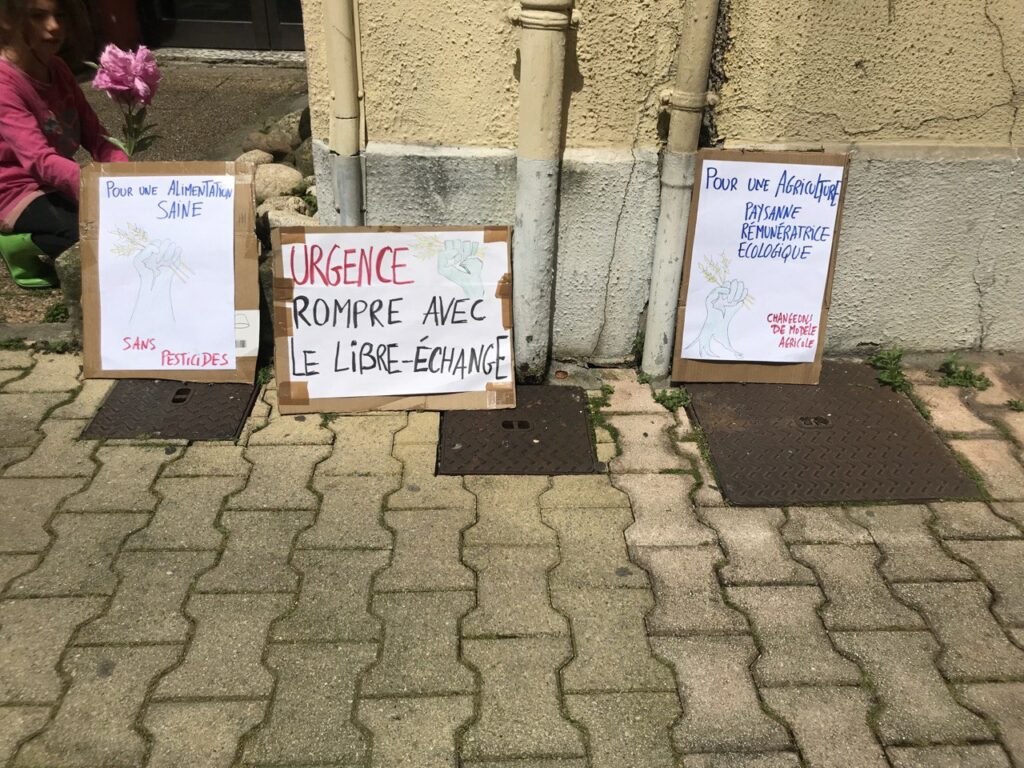 POUR UNE ALIMENTATION
SAINE
SANS PESTICIDES
URGENCE
ROMPRE AVEC
LE LIBRE-ÉCHANGE
POUR UNE AGRICULTURE
PAYSANNE
RÉMUNÉRATRICE
ECOLOGIQUE
CHANGEONS
DE MODÈLE
AGRICOLE